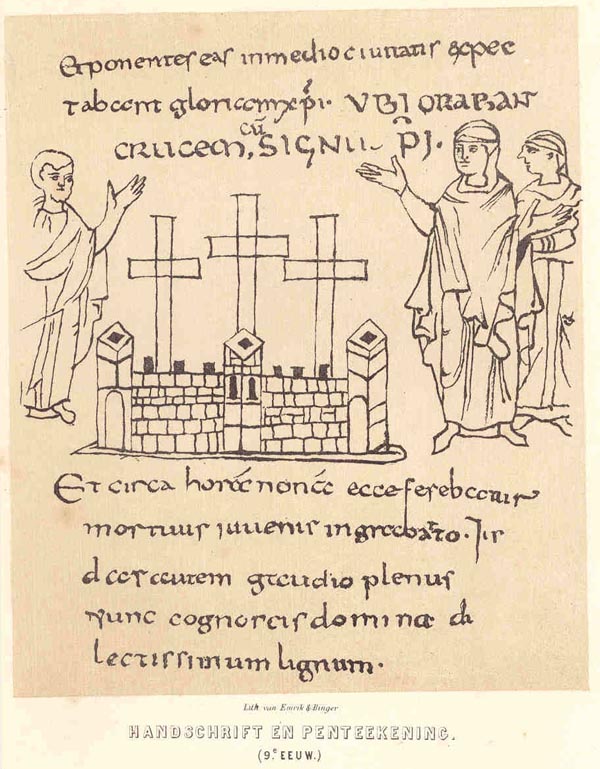 Et ponentes eas in medio ciuitatis expec
tabant gloriam xp̄i. VBI ORABANT
cū
crucem, SIGNU p̄i.
Et circa horam nonam ecce ferebatur
mortuus iuuenis in grabato. Iu
das autem gaudio plenus
Nunc cognosco domine di
lectissimum lignum.
Lith. van Emrik & Binger
HANDSCHRIFT EN PENTEEKENING.
(9.e EEUW.)